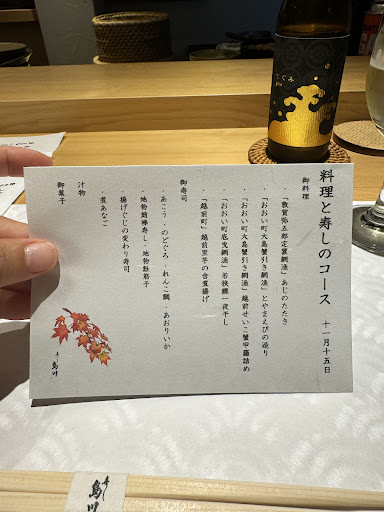 料理と寿しのコース 十一月十五日
御料理
・「敦賀弥五郎定置網漁」あじのたたき
・「おおい町大島蟹引き網漁」とやまえびの造り
・「おおい町大島蟹引き網漁」越前せいこ蟹甲羅詰め
・「おおい町底曳網漁」若狭鰈一夜干し
・「越前町」越前里芋の含煮揚げ
御寿司
・あこう・のどぐろ・れんこ鯛・あおりいか
・地物鯖棒寿し・地物鮭筋子
・揚げぐじの変わり寿司
・煮あなご
汁物
御菓子
鳥川
鳥川